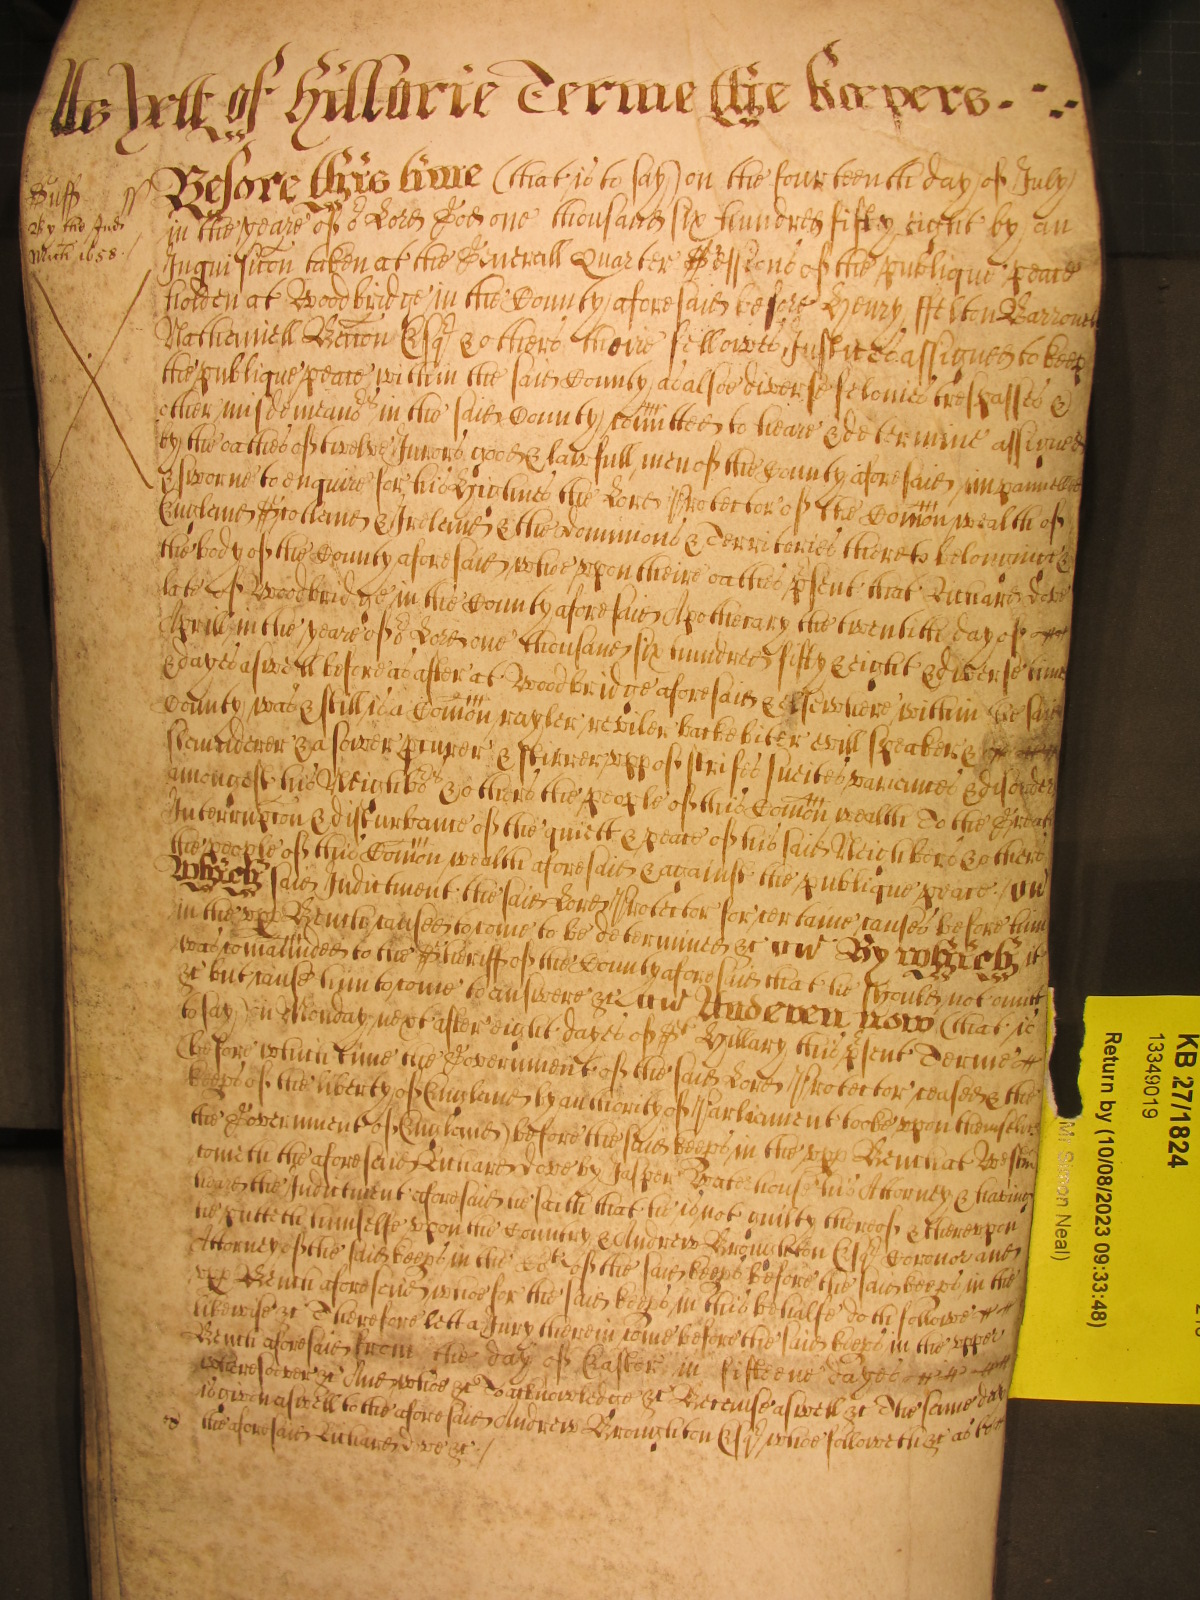 As yett of Hillarie Terme the Keepers
Suff ss
By the Ind
Mich 1658
Before this time (that is to say) on the fourteenth day of July
in the yeare of o r Lord God one thousand six hundred fifty eight by an
Inquisicon taken at the Generall Quarter Sessions of the publique peace
holden at Woodbridge in the County aforesaid before Henry ffelton Barronett
Nathaniell Bacon Esq & others theire fellowes Justices assigned to keep
the publique peace within the said County as alsoe diverse felonies trespasses &
other misdemeano rs in the said County comitted to heare & determine assigned
by the oathes of twelve Jurors good & lawfull men of the County aforesaid impannelled
& sworne to enquire for his Highnes the Lord Protector of the Comon wealth of
England Scotland & Ireland & the Dominions & Territories thereto belonging &
the body of the County aforesaid whoe vpon theire oathes psent that Richard Dove
late of Woodbridge in the County aforesaid Apothecary the twentith day of
Aprill in the yeare of o r Lord one thousand six hundred fifty & eight & diverse times
& dayes aswell before as after at Woodbridge aforesaid & elsewhere within the said
County was & still is a Comon rayler reviler backebiter evill speaker &
slanderer & a sower & stirrer vpp of strifes suites variances & disorders
amongest his Neighbo rs & others the people of this Comon wealth To the Great
Interrupcon & disturbance of the quiett & peace of his said Neighbors & others
the people of this Comon wealth aforesaid & against the publique peace &c
Which said Indictment the said Lord Protector for certaine causes before him
in the vpp Bench caused to come to be determined &c By which it
was comaunded to the Sheriff of the County aforesaid that he should not omitt
&c but cause him to come to answere &c And even now (that is
to say) on Monday next after eight dayes of S t Hillary this psent Terme
(before which time the Government of the said Lord Protector ceased & the
keeps of the liberty of England by authority of Parliament tooke vpon themselves
the Government of England) before the said keeps in the vpp Bench at Westm
cometh the aforesaid Richard Dove by Jasper Waterhouse his Attorney & having
heard the Indictment aforesaid he saith that he is not guilty thereof & therevpon
he putteth himselfe vpon the Country & Andrew Broughton Esq Coronor and
Attorney of the said keeps in the of the said keeps before the said keeps in the
vpp Bench aforesaid whoe for the said keeps in this behalfe doth followe
likewise &c Therefore lett a Jury therein come before the said keeps in the vpper
Bench aforesaid from the day of Easter in fifteene dayes
wheresoever &c And whoe &c To acknowledge &c Because aswell &c The same day
is given aswell to the aforesaid Andrew Broughton Esq whoe followeth &c as to
the aforesaid Richard Dove &c
KB 27/1824
13349019
Return by (10/08/2023 09:33:48)
Mr Simon Neal)